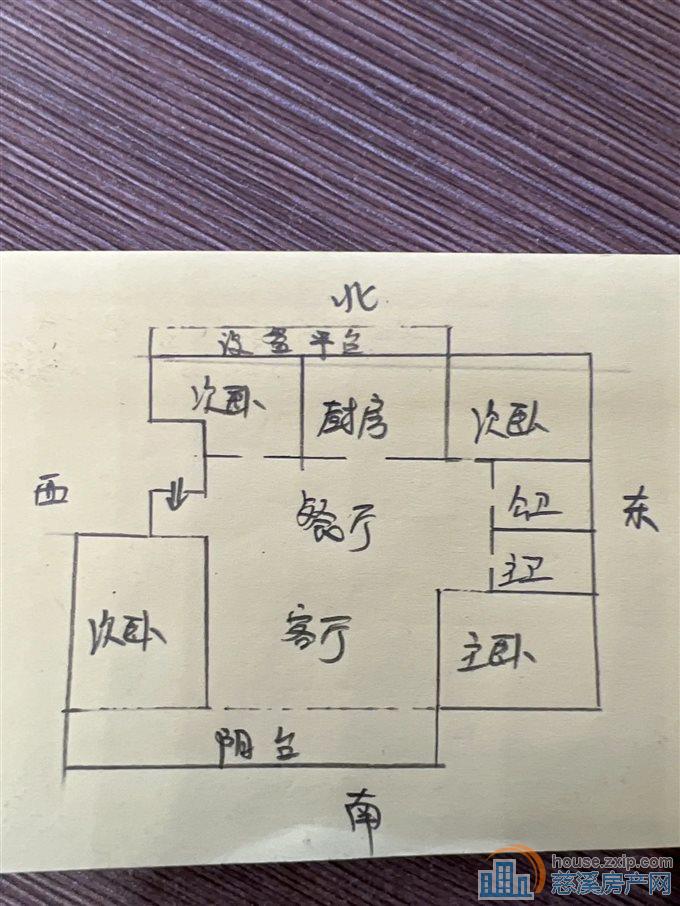 北
设备平台
次卧
厨房
次卧
西
餐厅
公卫
东
主卫
次卧
客厅
主卧
阳台
南
house.zxip.com
慈溪房产网